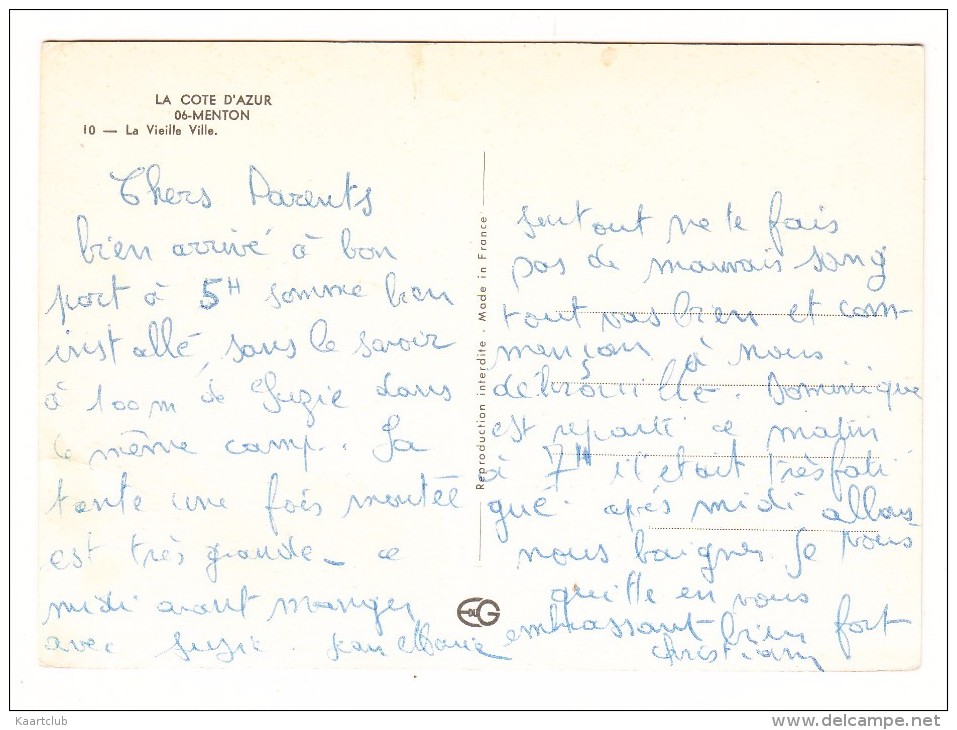 LA COTE D'AZUR
06-MENTON
10 — La Vieille Ville.
Chers Parents
bien arrivé à bon
port à 5H somme bien
installé, sans le savoir
à 100m de Suzie dans
le même camp. La
tante une fois montée
est très grande - ce
midi avont manger
avec Suzie. Jean Marie
Reproduction interdite. Made in France
EDUG
surtout ne te fais
pas de mauvais sang
tout vas bien et com-
mençon à nous
débrouillé. Dominique
est reparti ce matin
à 7H il était très fati
gué. après midi allons
nous baigner. Je vous
quitte en vous
embrassant bien fort
Christian
Kaartclub
www.delcampe.net